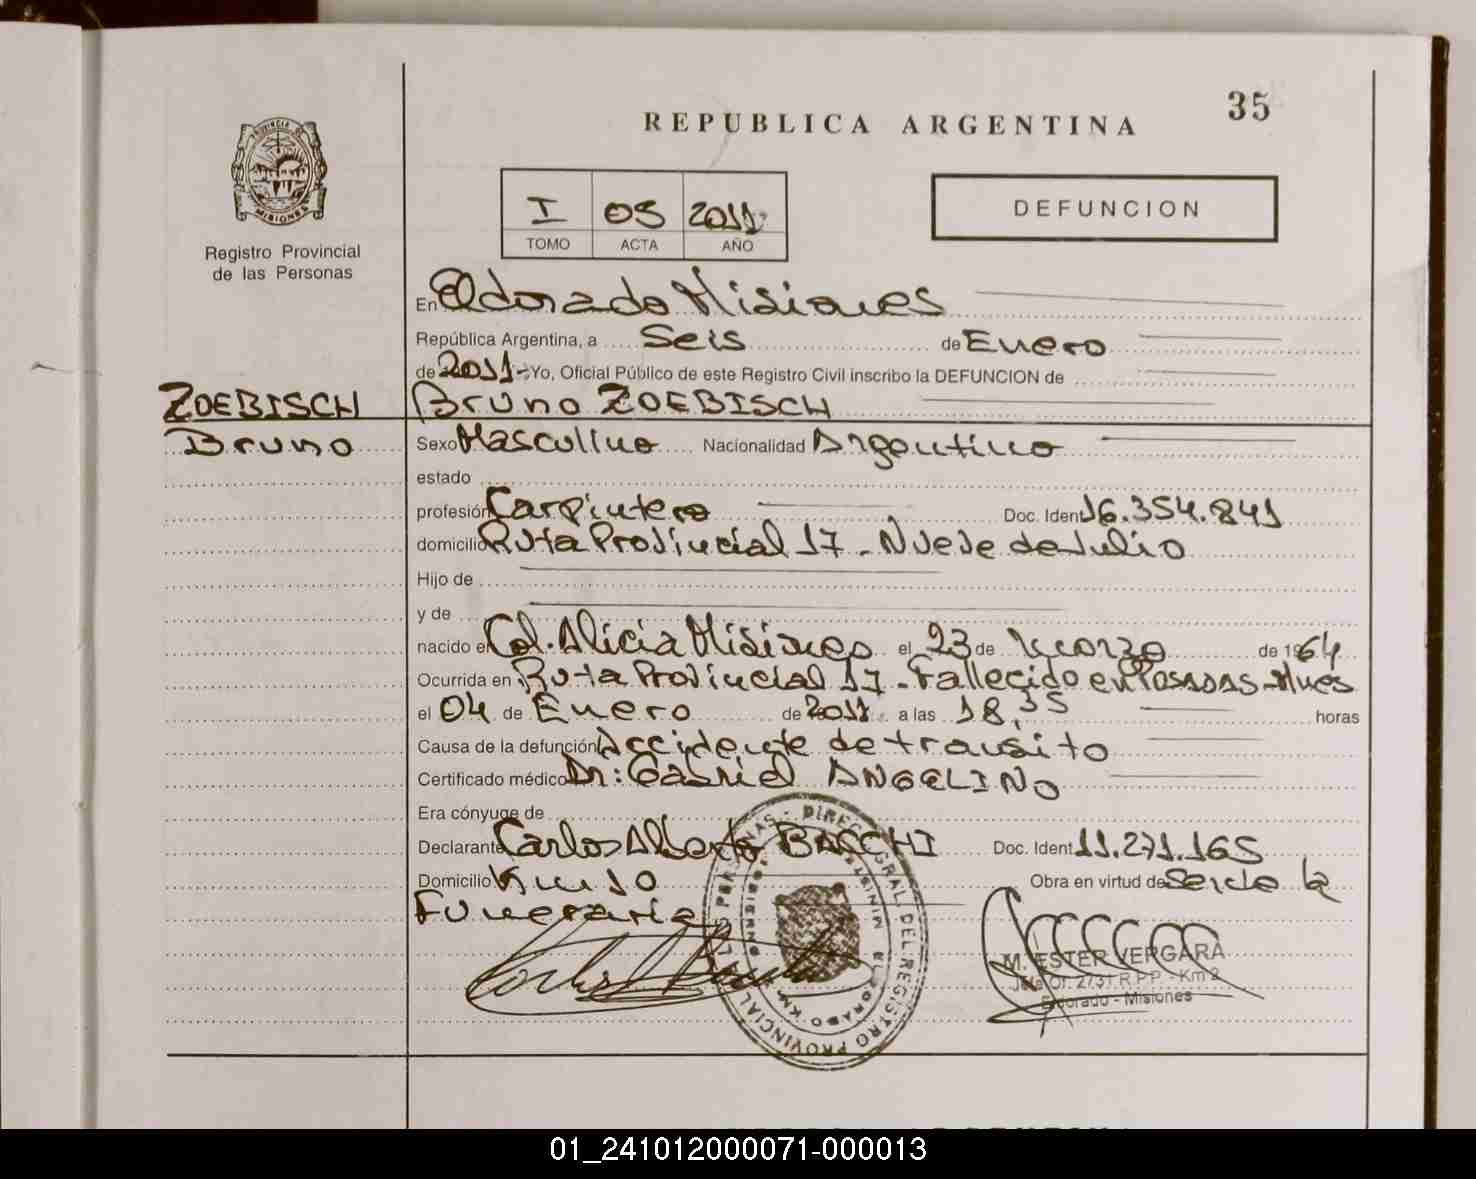 35
REPUBLICA ARGENTINA
PROVINCIA DE
MISIONES
Registro Provincial
de las Personas
I 05 2011
TOMO ACTA AÑO
DEFUNCION
En Eldorado Misiones
República Argentina, a Seis de Enero
de 2011- Yo, Oficial Público de este Registro Civil inscribo la DEFUNCION de
ZOEBISCH Bruno ZOEBISCH
Bruno Sexo Masculino Nacionalidad Argentino
estado
profesión Carpintero Doc. Ident 16.354.841
domicilio Ruta Provincial 17 - Nueve de Julio
Hijo de
y de
nacido en Col. Alicia Misiones el 23 de Marzo de 1964
Ocurrida en Ruta Provincial 17 - Fallecido en Posadas - Mnes
el 04 de Enero de 2011 a las 18,35 horas
Causa de la defunción Accidente de transito
Certificado médico Dr: Gabriel ANGELINO
Era cónyuge de
Declarante Carlos Alberto BACCHI Doc. Ident 11.271.165
Domicilio Km 10 Obra en virtud de Servicio
Funeraria
M. ESTER VERGARA
Jefa Of. 2731 R.P.P. - Km 2
Eldorado - Misiones
01_241012000071-000013